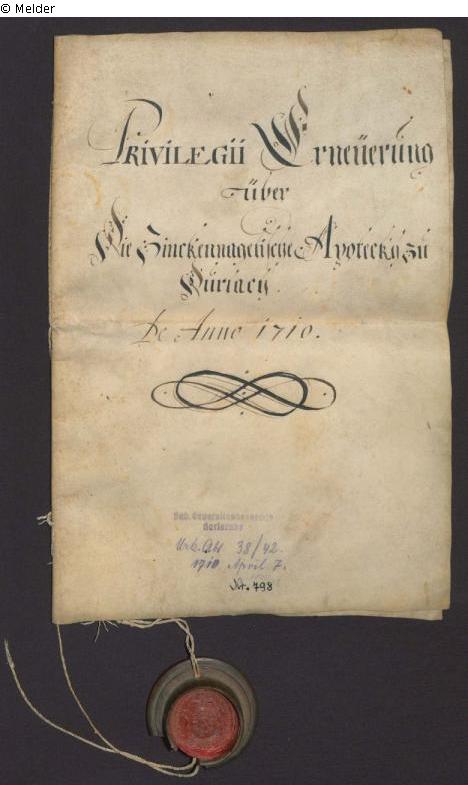 © Melder
PRIVILEGII Erneüerung
über
Die Zinckennagelische Apotecke zu
Durlach
De Anno 1710.
Bad. Generallandesarchiv
Karlsruhe
Urk. Abt 38/42.
1710 April 7.
Nr. 798